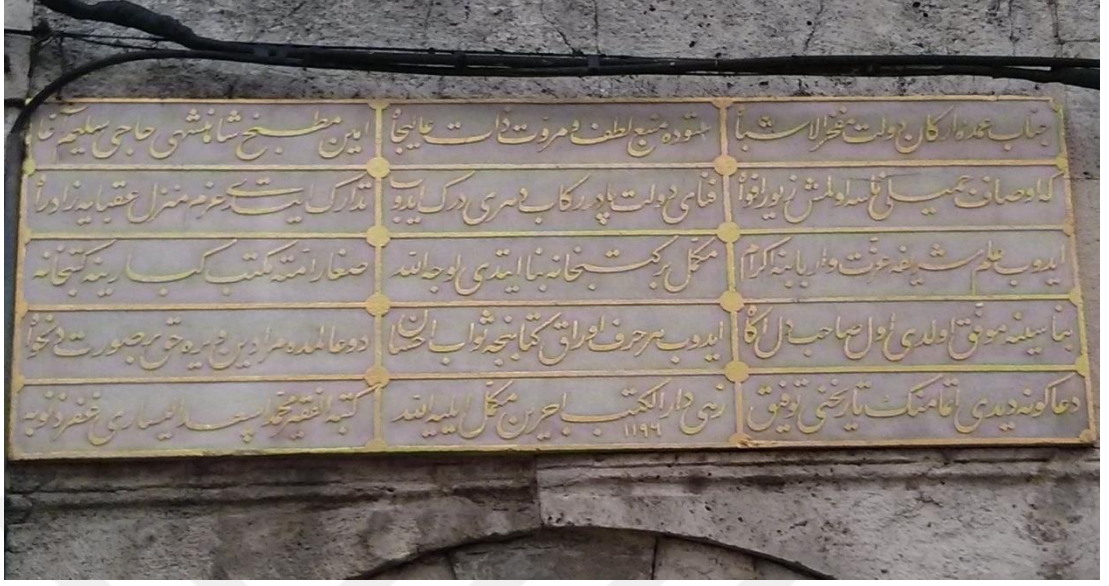 جناب عمدهٔ ارکان دولت مفخر الاشباه ستوده منبع لطف و مروت ذات عالیجاه امین مطبخ شاهنشهی حاجی سلیم آغا
که اوصاف جمیلی اولمش زیور افواه فنای دولت پا در رکاب دهری درک ایدوب تدارک ایتدی عزم منزل عقبایه زاد راه
ایدوب علم شریفه عزت و اربابنه اکرام مکمل بر کتبخانه بنا ایتدی لوجه الله صغار امته مکتب کبارینه کتبخانه
بناسینه موفق اولدی اول صاحب دل آگاه ایدوب هر حرف اوراق کتابنجه ثواب احسان دو عالمده مرادین ویره حق بر صورت دلخواه
دعا گونه دیدی اتمامنک تاریخنی توفیق زهی دار الکتب اجرین مکمل ایلیه الله ١١٩٦ کتبه الفقیر محمد اسعد الیساری غفر ذنوبه